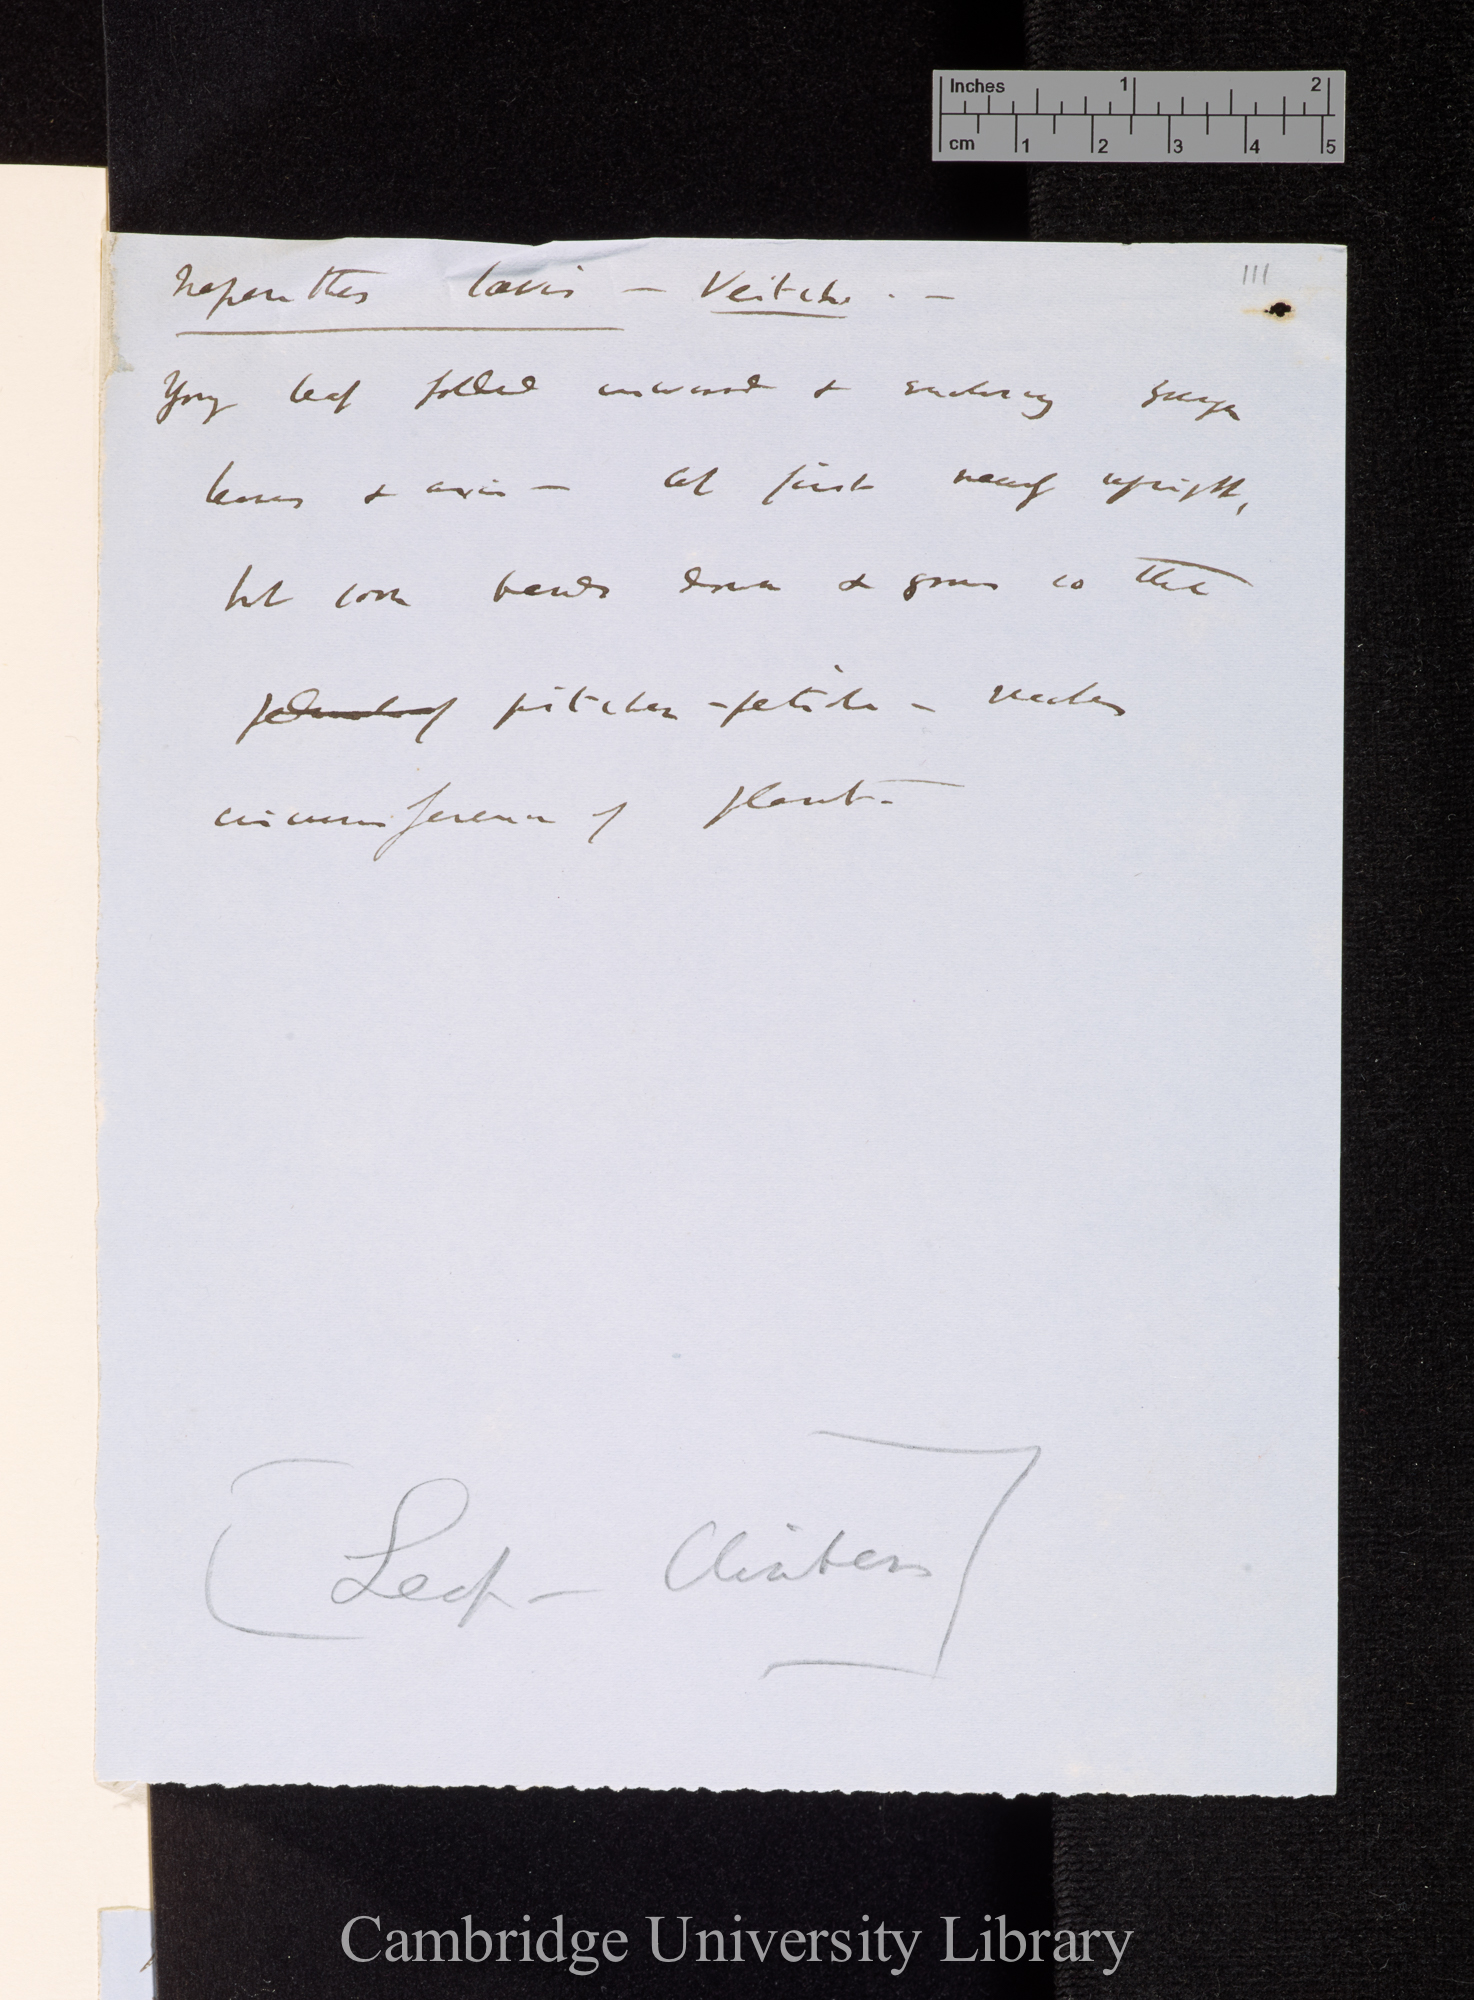 Inches 1 2
cm 1 2 3 4 5
111
Nepenthes lævis — Veitch. —
Young leaf folded inward & enclosing younger
leaves & axis — at first nearly upright,
but soon bends down & grows so that
pitcher-petiole — reaches
circumference of plant —
[Leaf — Climbers]
Cambridge University Library